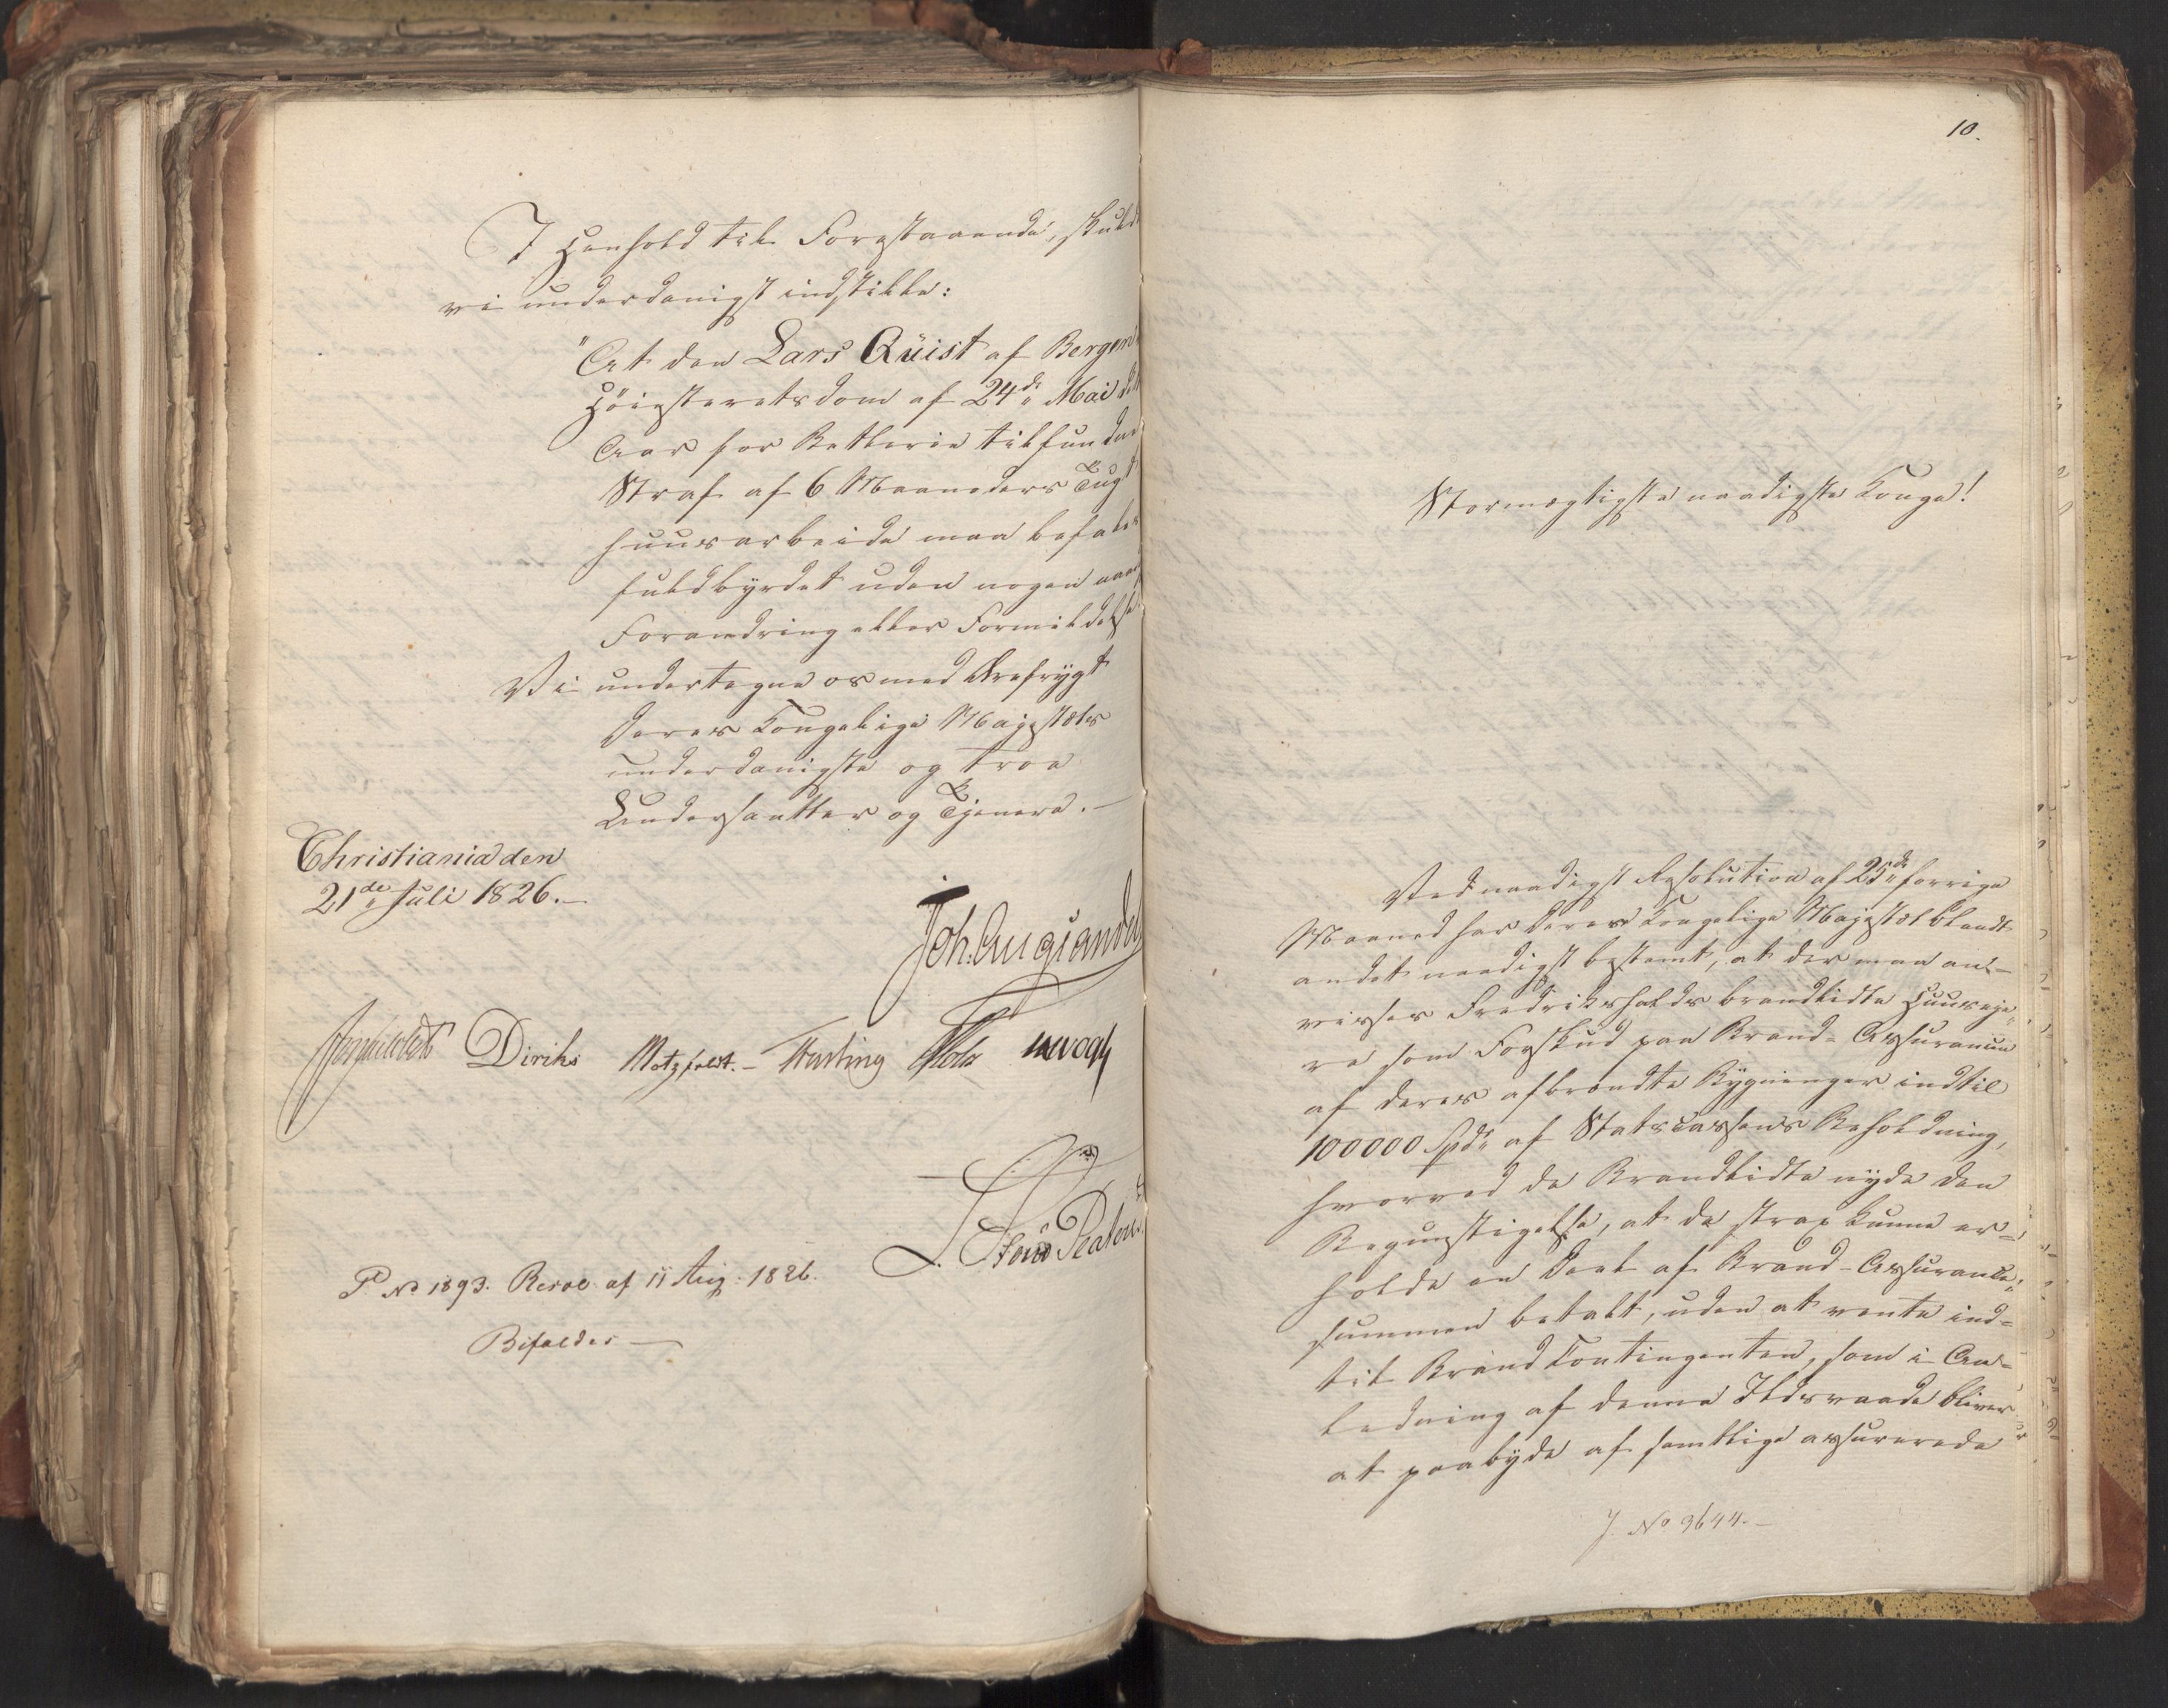 I Henhold til Forestaaende, skulde
vi underdanigst indstille:
"At den Lars Qüist af Bergen
Höiesteretsdom af 24de Mai d.
Aar for Rettens tilfundne
Straf af 6 Maaneders Tugt
huusarbeide maa befales
fuldbyrdet uden nogen naadig
Forandring eller Formildelse.
Vi undertegne os med Ærefrygt
Deres Kongelige Majestæts
underdanigste og troe
Undersaatter og Tjenere.-
Christiania den
21de Juli 1826.-
Joh. Aug. Sandels
Diriks Motzfeldt.- Fasting
L. Stoud Platou
P No 1893. Resol. af 11 Aug: 1826.
Bifaldes-
10.
Stormægtigste naadigste Konge!
Ved naadigst Resolution af 25de forrige
Maaned har Deres Kongelige Majestæt blandt
andet naadigst bestemt, at der maa an-
vises Fredrikshalds brandlidte Huuseje-
re som Forskud paa Brand-Assurancen
af deres afbrændte Bygninger indtil
100000 Spd. af Statscassens Beholdning,
hvorved de Brandlidte nyde den
Begunstigelse, at de strax kunne er-
holde en Deel af Brand-Assurance-
summen betalt, uden at vente ind-
til Brand Contingenten, som i An-
ledning af denne Ildsvaade bliver
at paabyde af samtlige assurerede
J. No 3644.-